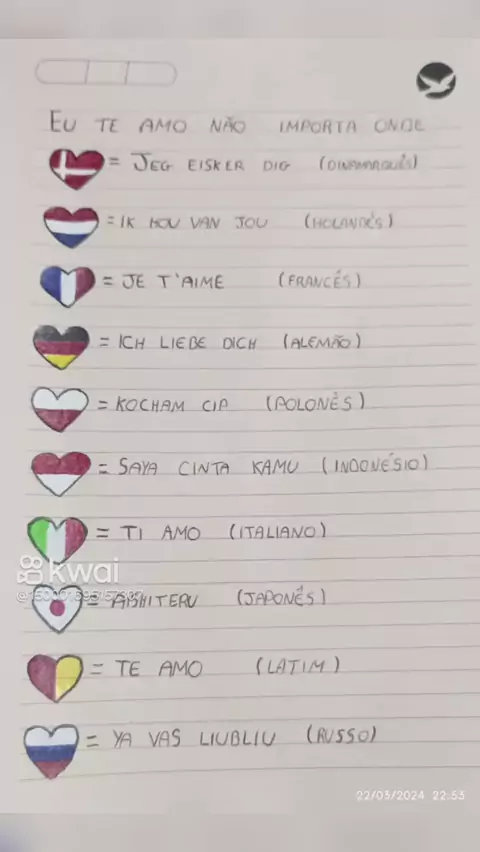 EU TE AMO NÃO IMPORTA ONDE
= JEG EISKER DIG (DINAMARQUÊS)
= IK HOU VAN JOU (HOLANDÊS)
= JE T'AIME (FRANCÊS)
= ICH LIEBE DICH (ALEMÃO)
= KOCHAM CIP (POLONÊS)
= SAYA CINTA KAMU (INDONÉSIO)
= TI AMO (ITALIANO)
kwai
= AISHITERU (JAPONÊS)
= TE AMO (LATIM)
= YA VAS LIUBLIU (RUSSO)
22/03/2024 22:53